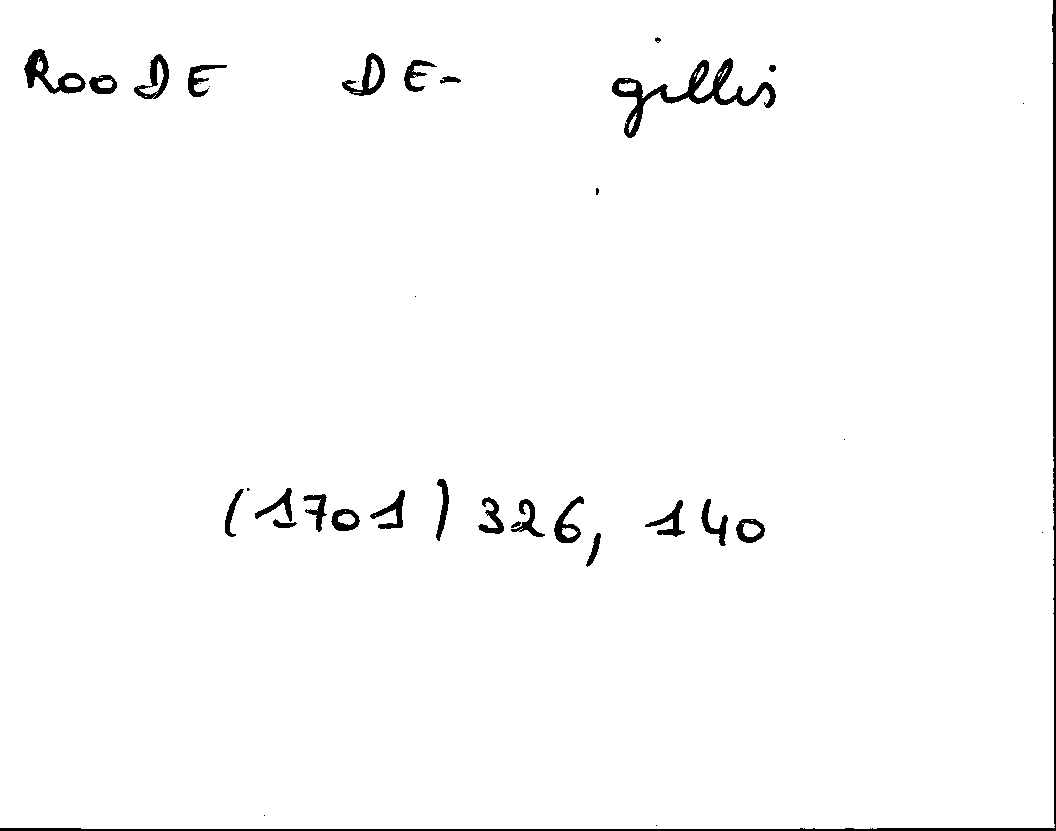 ROODE DE- gillis
(1701) 326, 140